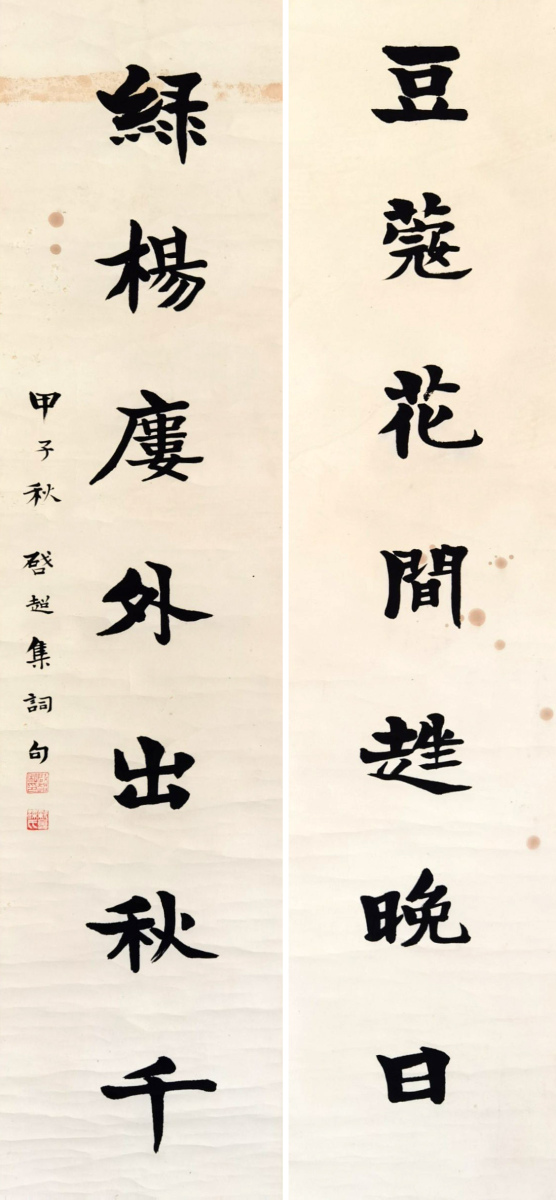 豆蔻花間趖晚日
綠楊廔外出秋千
甲子秋 啓超集詞句